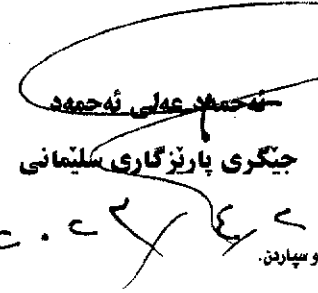 ئەحمەد عەلی ئەحمەد
جێگری پارێزگاری سلێمانی
و سپاردن.